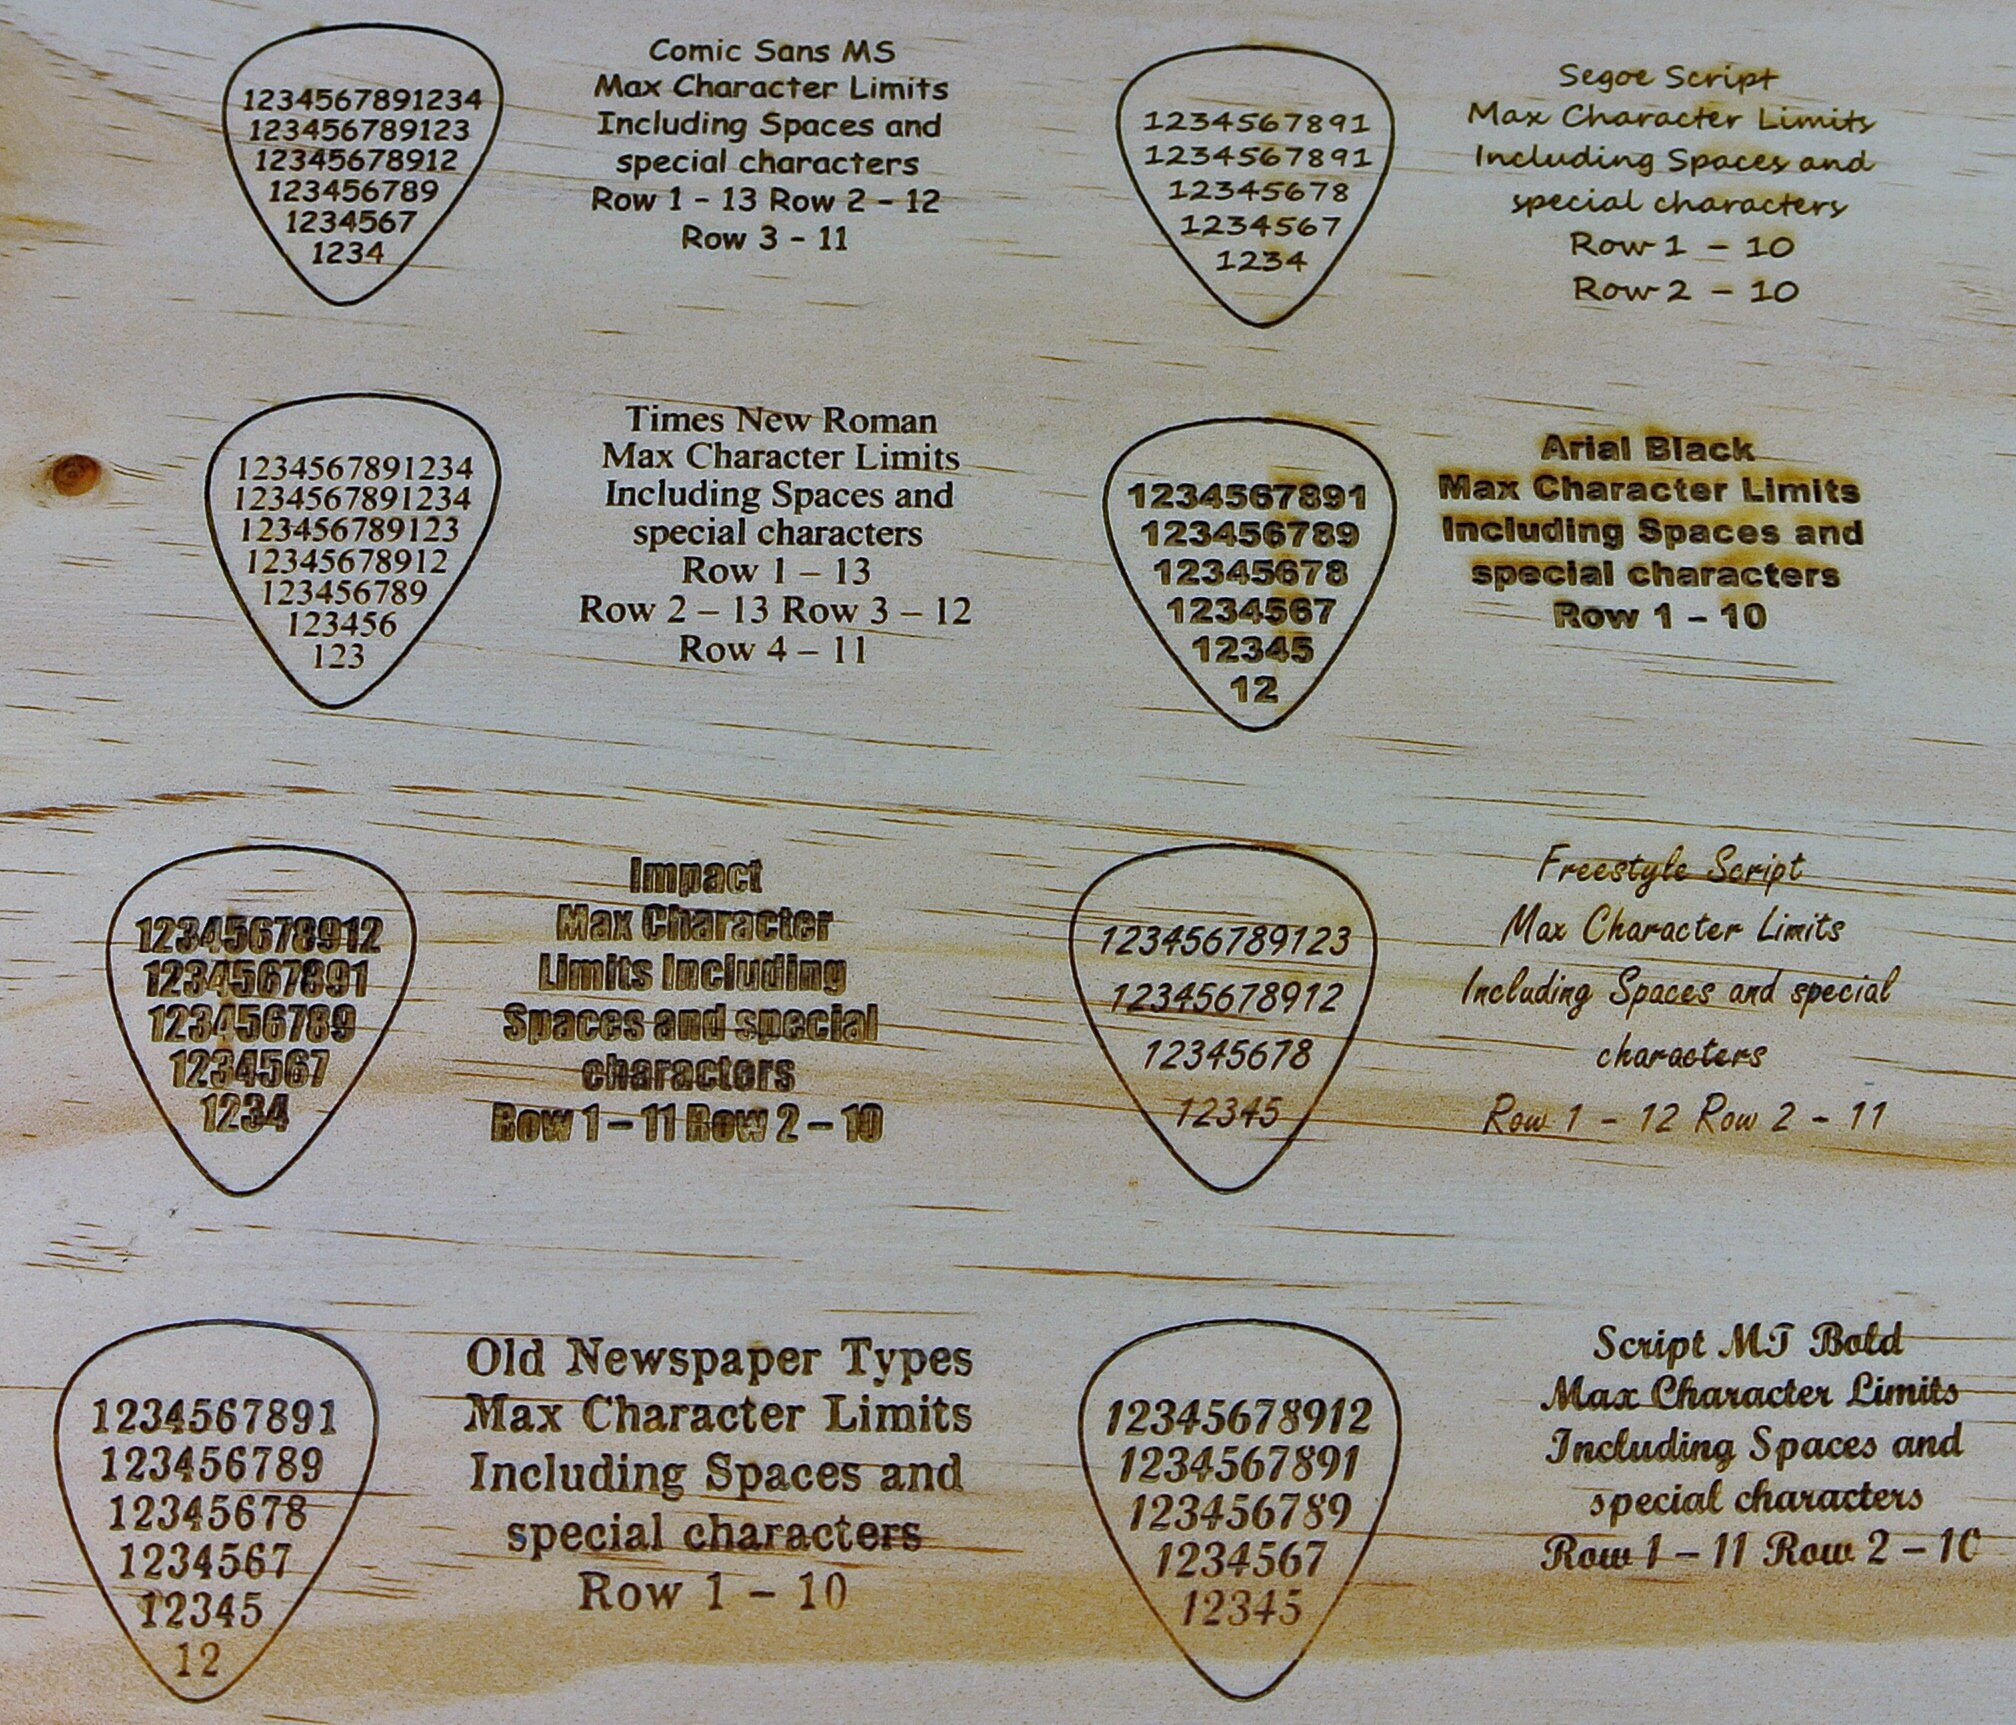 1234567891234
123456789123
12345678912
123456789
1234567
1234
Comic Sans MS
Max Character Limits
Including Spaces and
special characters
Row 1 - 13 Row 2 - 12
Row 3 - 11
1234567891
1234567891
12345678
1234567
1234
Segoe Script
Max Character Limits
Including Spaces and
special characters
Row 1 - 10
Row 2 - 10
1234567891234
1234567891234
123456789123
12345678912
123456789
123456
123
Times New Roman
Max Character Limits
Including Spaces and
special characters
Row 1 – 13
Row 2 – 13 Row 3 – 12
Row 4 – 11
1234567891
123456789
12345678
1234567
12345
12
Arial Black
Max Character Limits
Including Spaces and
special characters
Row 1 – 10
12345678912
1234567891
123456789
1234567
1234
Impact
Max Character
Limits Including
Spaces and special
characters
Row 1 – 11 Row 2 – 10
123456789123
12345678912
12345678
12345
Freestyle Script
Max Character Limits
Including Spaces and special
characters
Row 1 - 12 Row 2 - 11
1234567891
123456789
12345678
1234567
12345
12
Old Newspaper Types
Max Character Limits
Including Spaces and
special characters
Row 1 – 10
12345678912
1234567891
123456789
1234567
12345
Script MT Bold
Max Character Limits
Including Spaces and
special characters
Row 1 – 11 Row 2 – 10